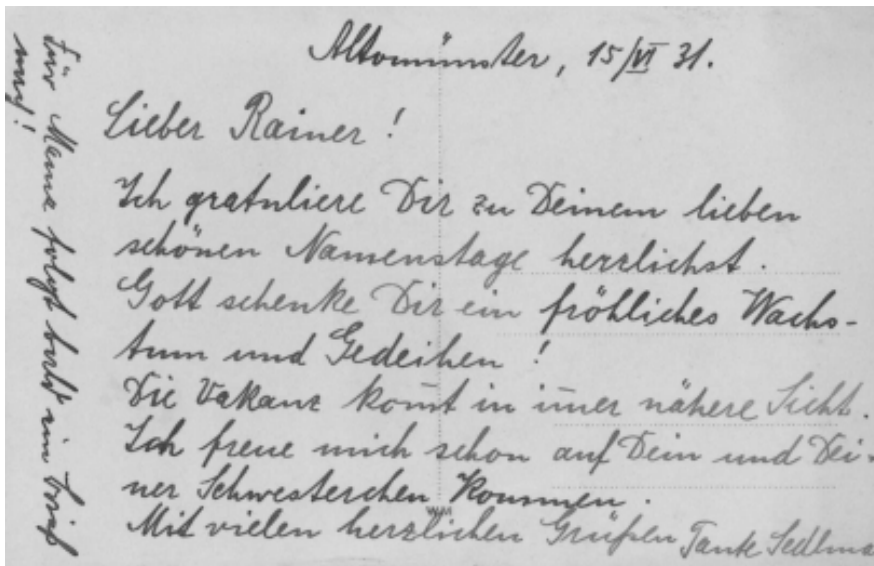 Altomünster, 15/VI 31.
Lieber Rainer!
Ich gratuliere Dir zu Deinem lieben
schönen Namenstage herzlichst.
Gott schenke Dir ein fröhliches Wachs-
tum und Gedeihen!
Die Vakanz kom̄t in im̄er nähere Sicht.
Ich freue mich schon auf Dein und Dei-
ner Schwesterchen Kommen.
Mit vielen herzlichen Grüßen Tante Sedlma
Für Mama folgt bald ein Brief
nach!